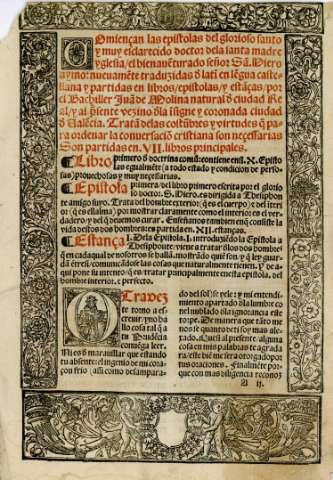 Comiençan las epistolas del glorioso santo
y muy esclarecido doctor dela santa madre
yglesia/el bienauẽturado señor Sã. Hiero
nymo: nueuamẽte traduzidas ð latĩ en lẽgua caste
llana y partidas en libros/epistolas/y estãças/por
el Bachiller Juã de Molina natural ð ciudad Re
al/y al p̃sente vezino ðla isigne y coronada ciudad
Valẽcia. Tratã ðlas costũbres y virtudes q̃ pa
ra ordenar la conuersaciõ cristiana son necessarias
Son partidas en. VII. libros principales.
Libro primero ð doctrina comũ: contiene en si. X. Episto
las egualmẽte (a todo estado y condicion de perso
nas) prouechosas y muy necessarias.
Epistola primera/del libro primero escrita por el glorio
so doctor. S.
amigo suyo. Trata del hombre exterior (q̃ es el cuerpo) y del iterior
(q̃ es el alma) por mostrar claramente como el interior es el ver
dadero/y el q̃ deuemos curar. Enseñanos tambien en q̃ consiste la
vida destos dos hombres: es partida en. XII. estanças.
Estança I. Dela Epistola. I. introduziẽdo la Epistola a
viene a tratar ðlos dos hombres
en cada qual de nosotros se
pone su intento (q̃ es/tratar principalmente en esta epistola, del
hombre interior. e perfecto.
Otra vez
te torno a es
creuir: y no ha
llo cosa tal q̃ a
tu Prudẽcia
conuẽga leer.
Ni es ð marauillar que estando
tu absente: el ingenio de mi cora
çon frio (assi como desampara
do del sol) se yele: y mi entendi
miento apartado ðla lumbre co
nel nublado ðla ignorancia este
torpe. De manera que tãto me
nos se quanto de ti soy mas ale
xado. Que si al presente alguna
cosa en mis palabras te agrada
re/esse biẽ me sera otorgado por
tus oraciones. Finalmẽte por
que con mas diligencia reconoz
A ij